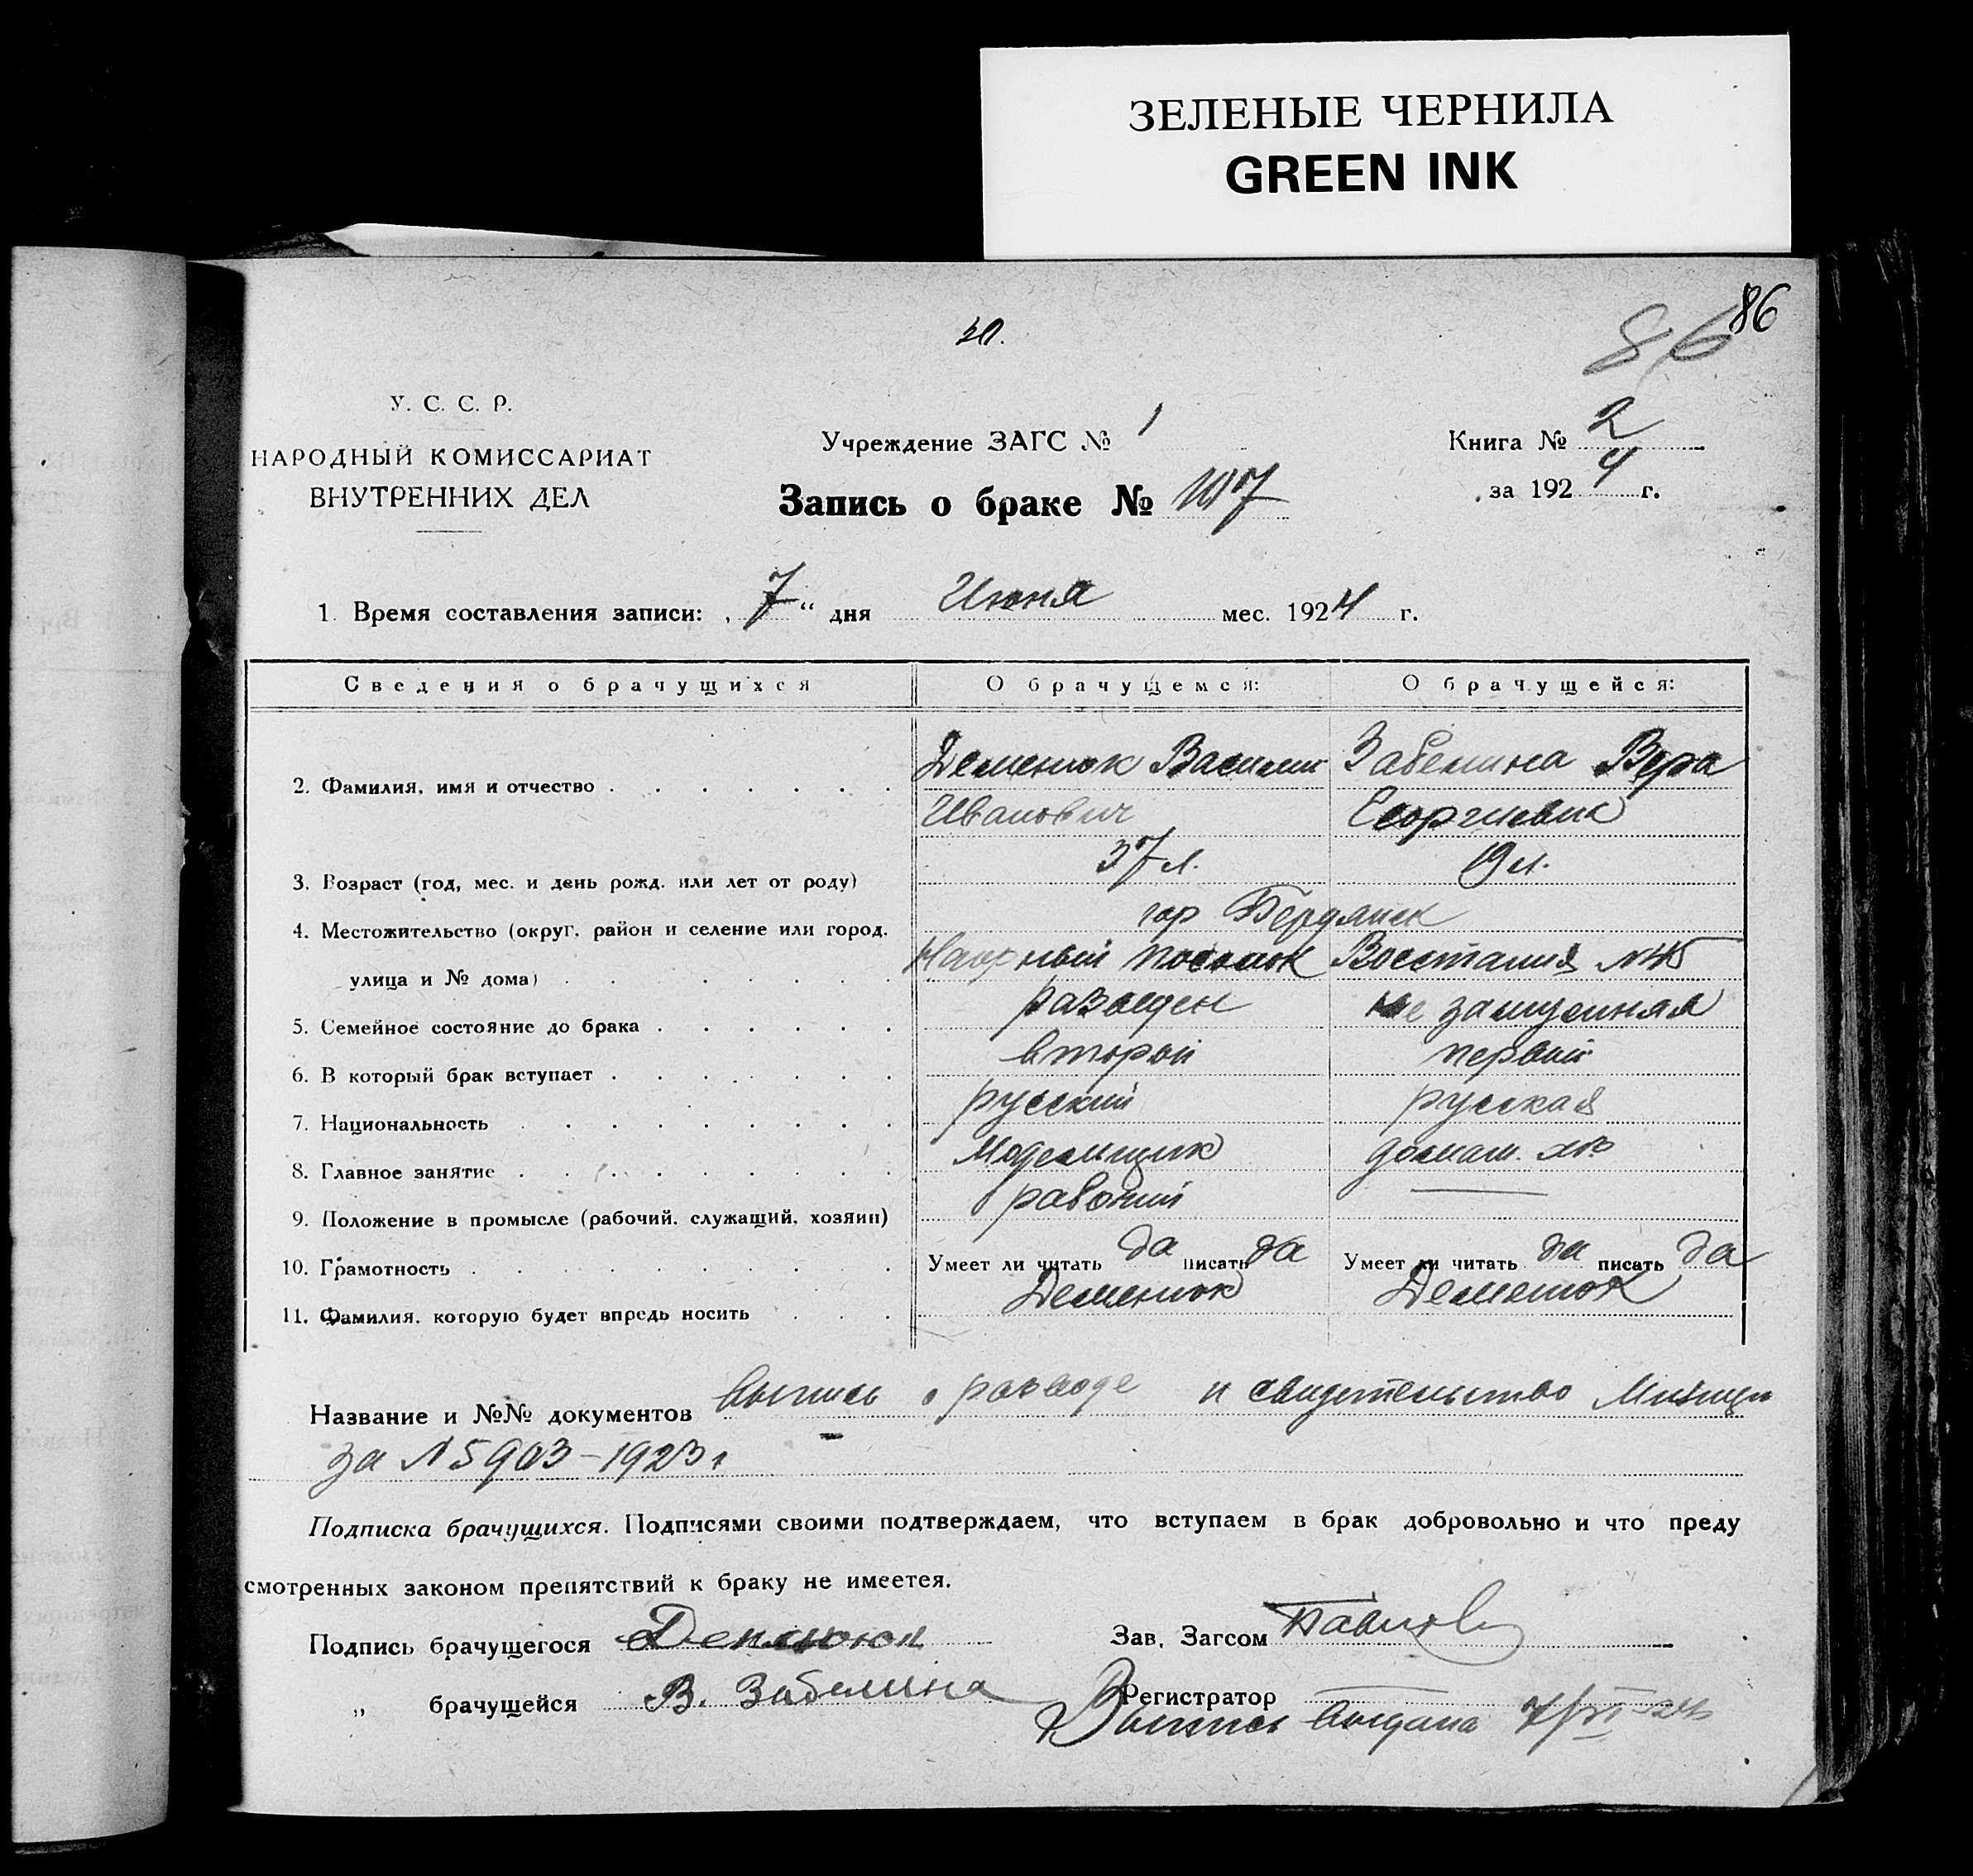 ЗЕЛЕНЫЕ ЧЕРНИЛА
GREEN INK
86
86
У. С. С. Р.
НАРОДНЫЙ КОМИССАРИАТ
ВНУТРЕННИХ ДЕЛ
Учреждение ЗАГС № 1
Запись о браке №
Книга № 2
за 1924 г.
1. Время составления записи: „7“ дня Июня мес. 1924 г.
Сведения о брачущихся О брачущемся: О брачущейся:
2. Фамилия, имя и отчество Деменюк Василий Забелина Вера
Иванович Георгиевна
3. Возраст (год, мес. и день рожд. или лет от роду) 37 л. 19 л.
4. Местожительство (округ, район и селение или город, гор Бердянск
улица и № дома) Нагорный поселок Восстания №
5. Семейное состояние до брака разведен не замужняя
6. В который брак вступает второй первый
7. Национальность русский русская
8. Главное занятие Модельщик домаш. хоз
9. Положение в промысле (рабочий, служащий, хозяин) рабочий —
10. Грамотность Умеет ли читать да писать да Умеет ли читать да писать да
11. Фамилия, которую будет впредь носить Деменюк Деменюк
Название и №№ документов выпись о разводе и свидетельство Милиции
за № 5903 – 1923 г
Подписка брачущихся. Подписями своими подтверждаем, что вступаем в брак добровольно и что преду
смотренных законом препятствий к браку не имеется.
Подпись брачущегося Деменюк Зав. Загсом Павлов
„ брачущейся В. Забелина Регистратор —
Выпись выдана 7/VI-24